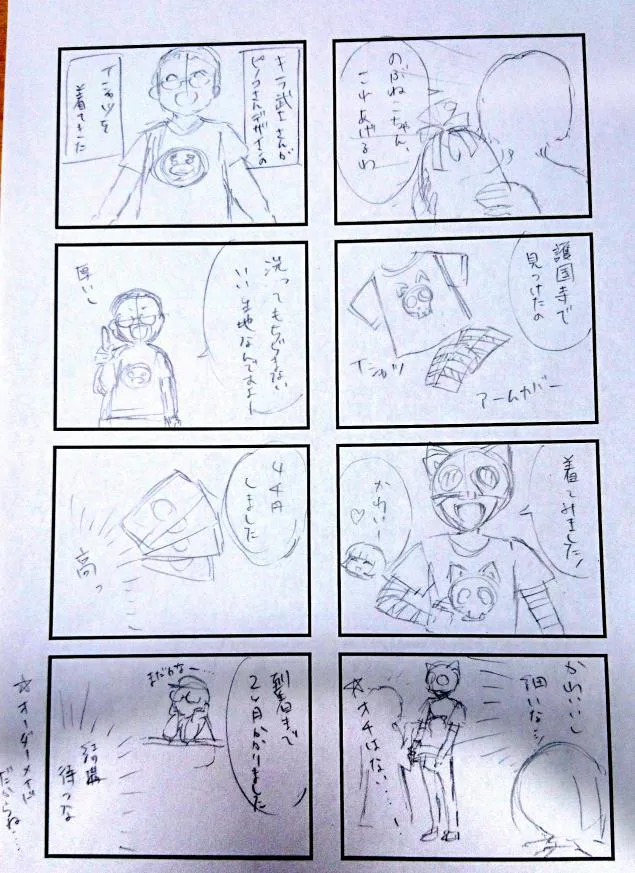 のぶねこちゃん、
これあげるわ
護国寺で
見つけたの
Tシャツ
アームカバー
着てみました!
かわいー♡
かわいいし
細いな…
☆オチはない…
キラ武士さんが
ピノコさんデザインの
Tシャツを
着てきた
洗ってもちぢまない
いい生地なんですよー
厚いし
4、4千円
しました
高っ
到着まで
2ヶ月かかりました
まだかなー
結構
待つな
☆オーダーメイド
だからね…